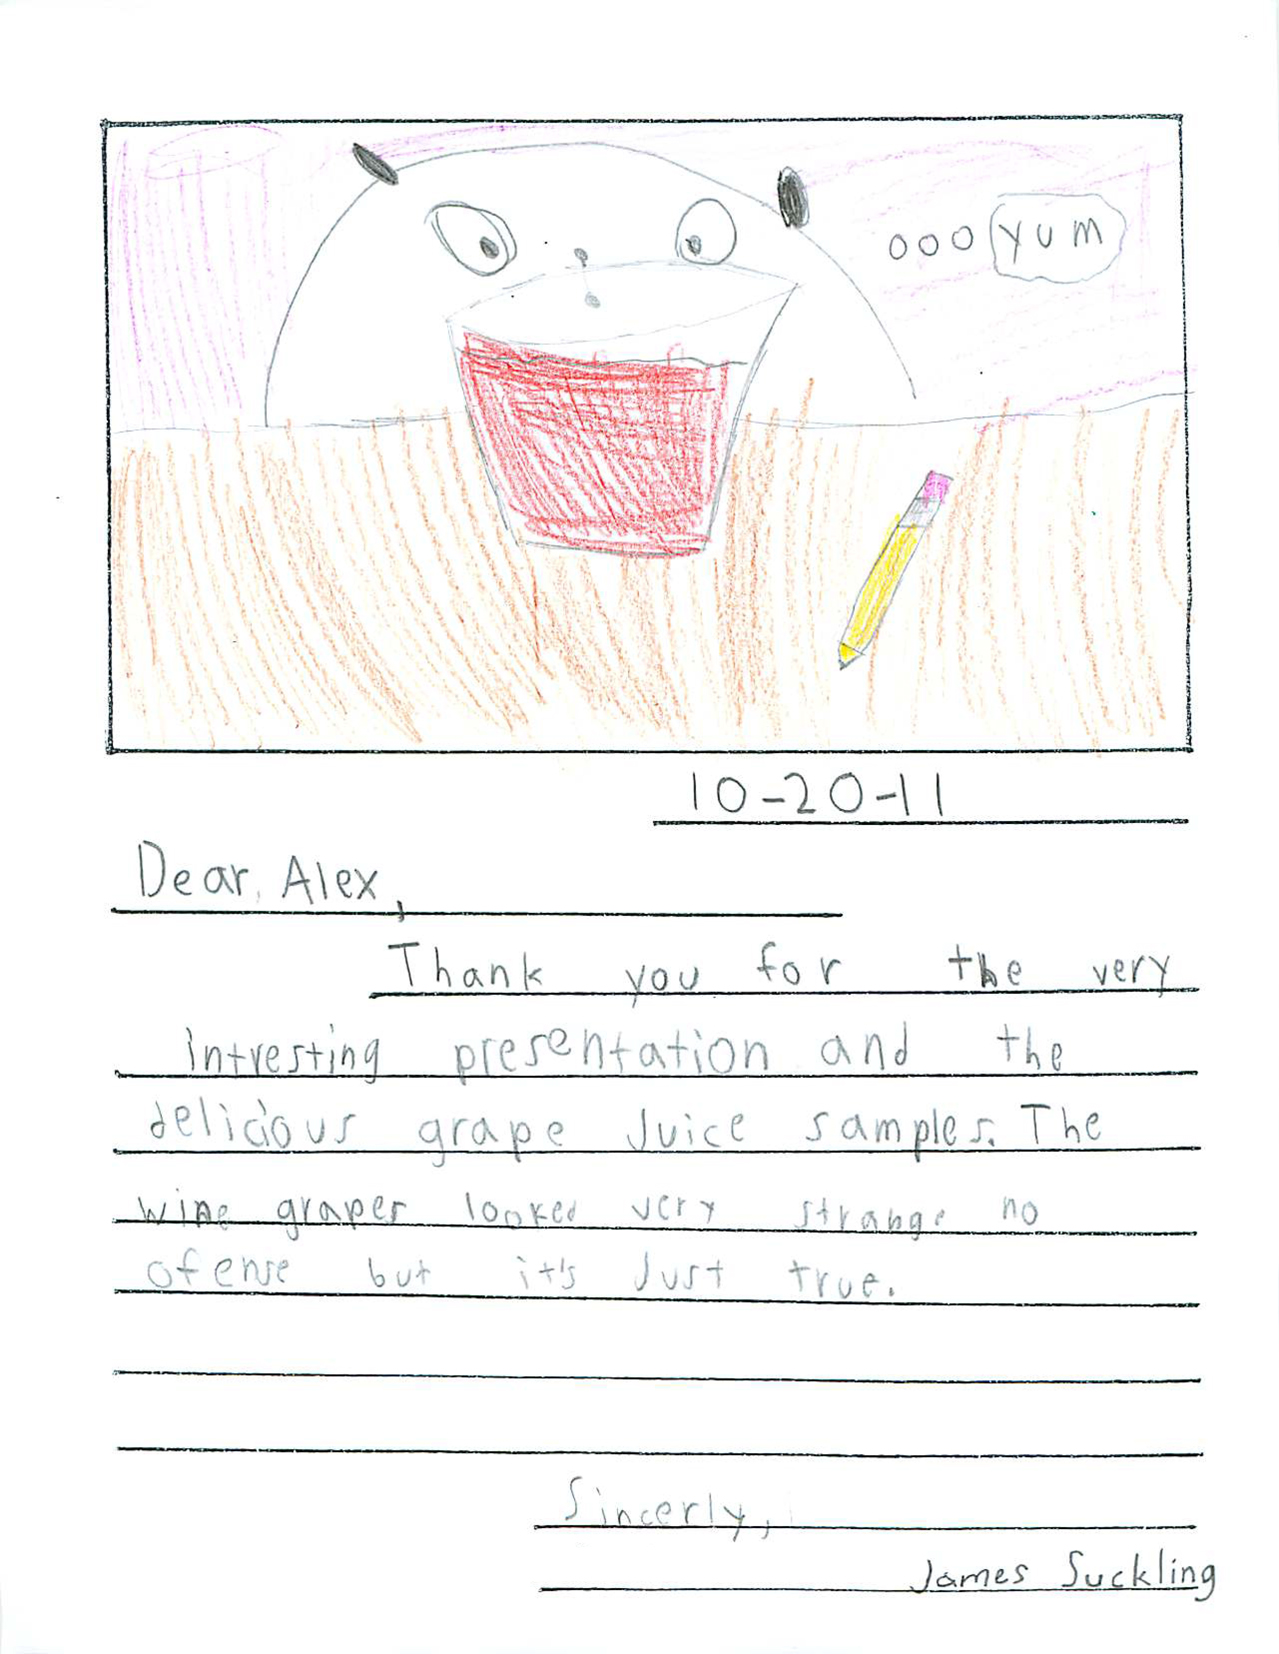 ooo yum
10-20-11
Dear, Alex,
Thank you for the very
intresting presentation and the
delicious grape Juice samples. The
wine grapes looked very strange no
ofense but it's Just true.
Sincerly,
James Suckling